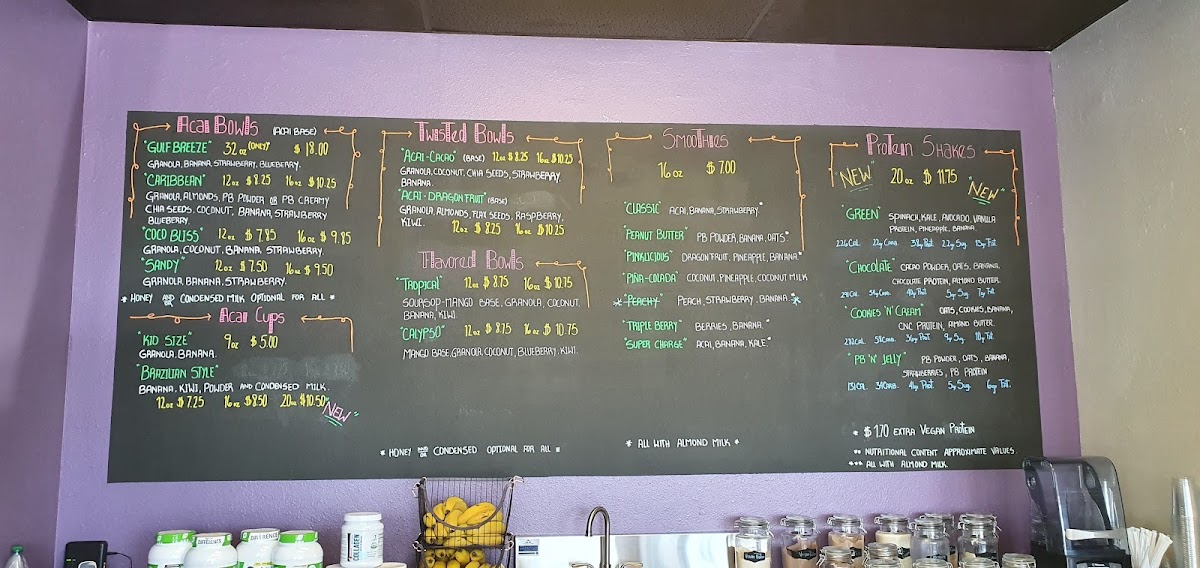 Acai Bowls (Acai Base)
"Gulf Breeze" 32oz (only) $18.00
Granola, Banana, Strawberry, Blueberry.
"Caribbean" 12oz $8.25 16oz $10.25
Granola, Almonds, PB Powder or PB Creamy
Chia Seeds, Coconut, Banana, Strawberry
Blueberry.
"Coco Bliss" 12oz $7.85 16oz $9.85
Granola, Coconut, Banana, Strawberry.
"Sandy" 12oz $7.50 16oz $9.50
Granola, Banana, Strawberry.
* Honey and or Condensed Milk Optional for all *
Acai Cups
"Kid Size" 9oz $5.00
Granola, Banana.
"Brazilian Style"
Banana, Kiwi, Powder and Condensed Milk.
12oz $7.25 16oz $8.50 20oz $10.50 "New"
Twisted Bowls
"Acai-Cacao" (Base) 12oz $8.25 16oz $10.25
Granola, Coconut, Chia Seeds, Strawberry.
Banana.
"Acai-Dragon Fruit" (Base)
Granola, Almonds, Flax Seeds, Raspberry,
Kiwi. 12oz $8.25 16oz $10.25
Flavored Bowls
"Tropical" 12oz $8.75 16oz $10.75
Soursop-Mango Base, Granola, Coconut,
Banana, Kiwi.
"Calypso" 12oz $8.75 16oz $10.75
Mango Base, Granola, Coconut, Blueberry, Kiwi.
* Honey and or Condensed Optional for all *
Smoothies
16oz $7.00
"Classic" Acai, Banana, Strawberry.*
"Peanut Butter" PB Powder, Banana, Oats.*
"Pinklicious" Dragon Fruit, Pineapple, Banana.*
"Piña-Colada" Coconut, Pineapple, Coconut Milk
*"Peachy" Peach, Strawberry, Banana.*
"Triple Berry" Berries, Banana.*
"Super Charge" Acai, Banana, Kale.*
* All with Almond Milk *
Protein Shakes
"New" 20oz $11.75 "New"
"Green" Spinach, Kale, Avocado, Vanilla
Protein, Pineapple, Banana.
"Chocolate" Cacao Powder, Oats, Banana,
Chocolate Protein, Almond Butter.
"Cookies 'N' Cream" Oats, Cookies, Banana,
CNC Protein, Almond Butter.
"PB 'N' Jelly" PB Powder, Oats, Banana,
Strawberries, PB Protein
* $1.70 Extra Vegan Protein
** Nutritional Content Approximate Values.
*** All with Almond Milk
COLLAGEN